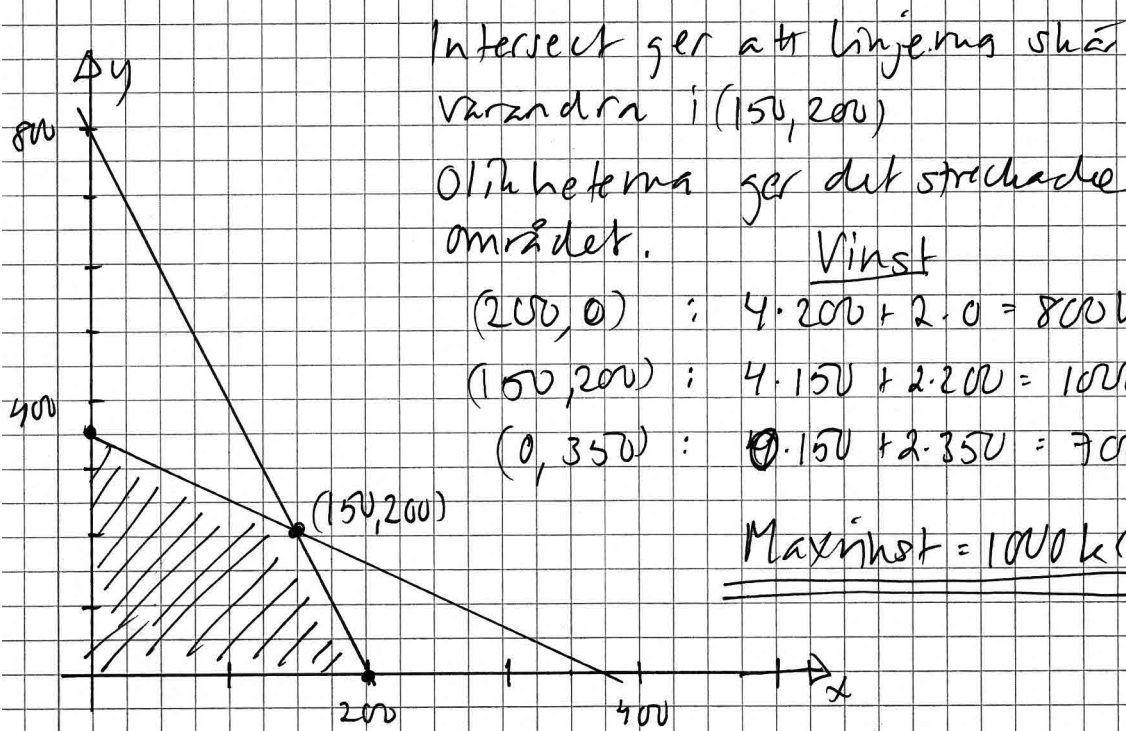 Intersect ger att linjerna skär
varandra i (150, 200)
Olikheterna ger det streckade
området.
Vinst
(200, 0) : 4·200 + 2·0 = 800
(150, 200) : 4·150 + 2·200 = 100
(0, 350) : 0·150 + 2·350 = 70
Maxvinst = 1000 k
y
800
400
(150, 200)
200
400
x